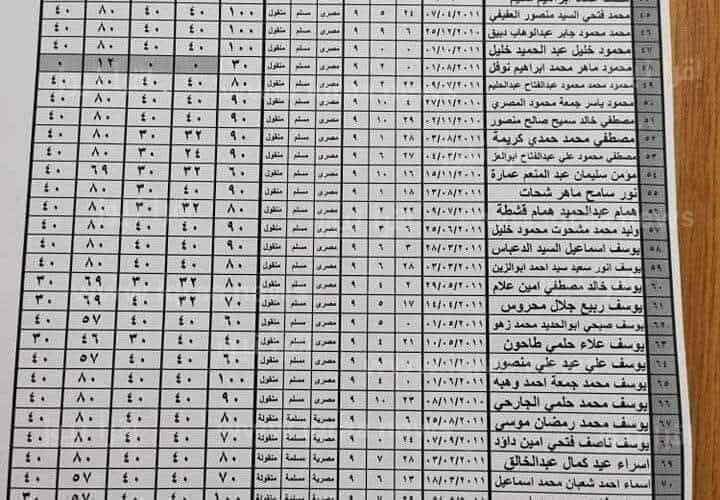 ٤٥ محمد فتحي السيد منصور العفيفي ٠٧/٠٤/٢٠١١ ٢٤ ٥ ٩ مصرى مسلم منقول ١٠٠ ٤٠ ٤٠ ٨٠ ٤٠
٤٦ محمد محمود جابر عبدالوهاب دبيق ٢٥/١٢/٢٠١٠ ٦ ٩ ٩ مصرى مسلم منقول ١٠٠ ٤٠ ٤٠ ٨٠ ٤٠
٤٧ محمود خليل عبد الحميد خليل ٠١/١٠/٢٠١١ ٠ ٠ ٩ مصرى مسلم منقول ١٠٠ ٤٠ ٤٠ ٨٠ ٤٠
٤٨ محمود ماهر محمد ابراهيم نوفل ٠١/٠٨/٢٠١١ ٠ ٢ ٩ مصرى مسلم منقول ٣٠ ٠ ٠ ١٢ ٠
٤٩ محمود محمد محمود عبدالفتاح عبدالحليم ٠٩/٠٧/٢٠١١ ٢٢ ٢ ٩ مصرى مسلم منقول ٨٠ ٤٠ ٤٠ ٨٠ ٤٠
٥٠ محمود ياسر جمعة محمود المصري ٢٧/١١/٢٠١٠ ٤ ١٠ ٩ مصرى مسلم منقول ٩٠ ٤٠ ٤٠ ٨٠ ٤٠
٥١ مصطفي خالد سميح صالح منصور ٠٢/١١/٢٠١٠ ٢٩ ١٠ ٩ مصرى مسلم منقول ٩٠ ٤٠ ٤٠ ٨٠ ٤٠
٥٢ مصطفي محمد حمدي كريمة ٠٣/٠٨/٢٠١١ ٢٨ ١ ٩ مصرى مسلم منقول ٩٠ ٣٢ ٣٠ ٨٠ ٤٠
٥٣ مصطفي محمود علي عبدالفتاح ابوالعز ٠٤/٠٣/٢٠١١ ٢٧ ٦ ٩ مصرى مسلم منقول ٩٠ ٢٤ ٣٠ ٨٠ ٤٠
٥٤ مومن سليمان عبد المنعم عمارة ١٥/١١/٢٠١٠ ١٦ ١٠ ٩ مصرى مسلم منقول ٦٠ ٣٢ ٣٠ ٦٩ ٤٠
٥٥ نور سامح ماهر شحات ١٣/٠٨/٢٠١١ ١٨ ١ ٩ مصرى مسلم منقول ٩٠ ٤٠ ٤٠ ٨٠ ٤٠
٥٦ همام عبدالحميد همام قشطة ٠٩/٠٧/٢٠١١ ٢٢ ٢ ٩ مصرى مسلم منقول ٨٠ ٣٢ ٣٠ ٨٠ ٤٠
٥٧ وليد محمد مشحوت محمود خليل ٢٥/٠٦/٢٠١١ ٦ ٣ ٩ مصرى مسلم منقول ٩٠ ٤٠ ٤٠ ٨٠ ٤٠
٥٨ يوسف اسماعيل السيد الدعباس ٢٨/٠٣/٢٠١١ ٣ ٦ ٩ مصرى مسلم منقول ٩٠ ٤٠ ٤٠ ٨٠ ٤٠
٥٩ يوسف انور سعيد سيد احمد ابوالزين ٠٣/٠٣/٢٠١١ ٢٨ ٦ ٩ مصرى مسلم منقول ٨٠ ٤٠ ٤٠ ٨٠ ٤٠
٦٠ يوسف خالد مصطفي امين علام ٢٩/٠٥/٢٠١١ ٢ ٤ ٩ مصرى مسلم منقول ٨٠ ٣٢ ٣٠ ٦٩ ٣٠
٦١ يوسف ربيع جلال محروس ١٤/٠٤/٢٠١١ ١٧ ٥ ٩ مصرى مسلم منقول ٧٠ ٣٢ ٤٠ ٦٩ ٣٠
٦٢ يوسف صبحي ابوالحديد محمد زهو ٠١/٠٥/٢٠١١ ٠ ٥ ٩ مصرى مسلم منقول ٦٠ ٤٠ ٤٠ ٥٧ ٤٠
٦٣ يوسف علاء حلمي طاحون ١٠/٠٥/٢٠١١ ٢١ ٤ ٩ مصرى مسلم منقول ٤٠ ٤٠ ٣٠ ٤٦ ٣٠
٦٤ يوسف علي عيد علي منصور ٠١/٠١/٢٠١١ ٠ ٩ ٩ مصرى مسلم منقول ٦٠ ٤٠ ٤٠ ٥٧ ٤٠
٦٥ يوسف محمد جمعة احمد وهبه ٠١/٠٤/٢٠١١ ٠ ٦ ٩ مصرى مسلم منقول ١٠٠ ٤٠ ٤٠ ٨٠ ٤٠
٦٦ يوسف محمد حلمي الجارحي ٠٨/١١/٢٠١٠ ٢٣ ١٠ ٩ مصرى مسلم منقول ٩٠ ٤٠ ٤٠ ٨٠ ٤٠
٦٧ يوسف محمد رمضان موسى ٢٥/٠٨/٢٠١١ ٦ ١ ٩ مصرية مسلمة منقولة ٨٠ ٤٠ ٤٠ ٨٠ ٤٠
يوسف ناصف فتحي امين داؤد ٠٧/٠٩/٢٠١١ ٢٤ ٩ مصرية مسلمة منقولة ٨٠ ٤٠ ٤٠ ٨٠ ٤٠
٦٩ اسراء عيد كمال عبدالخالق ٠٣/٠٢/٢٠١١ ٢٨ ٧ ٩ مصرية مسلمة منقولة ٨٠ ٤٠ ٤٠ ٨٠ ٤٠
٧٠ اسماء احمد شعبان محمد اسماعيل ١٨/٠٣/٢٠١١ ١٣ ٦ ٩ مصرية مسلمة منقولة ٧٠ ٤٠ ٤٠ ٥٧ ٤٠